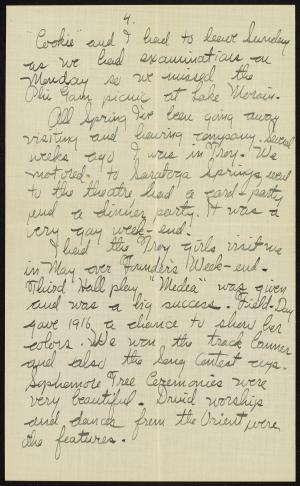 4.
"Cookie" and I had to leave Sunday
as we had examinations on
Monday so we missed the
Phi Gam picnic at Lake Morain.
All Spring I've been going away
visiting and having company. Several
weeks ago I was in Troy. We
motored to Saratoga Springs, went
to the theatre had a card-party
and a dinner party. It was a
very gay week-end.
I had the Troy girls visit me
in May over Founder's Week-end.
Third Hall play "Medea" was given
and was a big success. Field-Day
gave 1916 a chance to show her
colors. We won the track banner
and also the Song Contest cup.
Sophomore Tree Ceremonies were
very beautiful. Druid worship
and dances from the Orient were
the features.